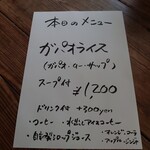 本日のメニュー
ガパオライス
(ガパオ・ムー・サップ)
スープ付 ¥1,200
ドリンク付 +300yen
・コーヒー ・水出しアイスコーヒー
・自家製シロップジュース
・オレンジ・コーラ
・アップル・ジンジャ